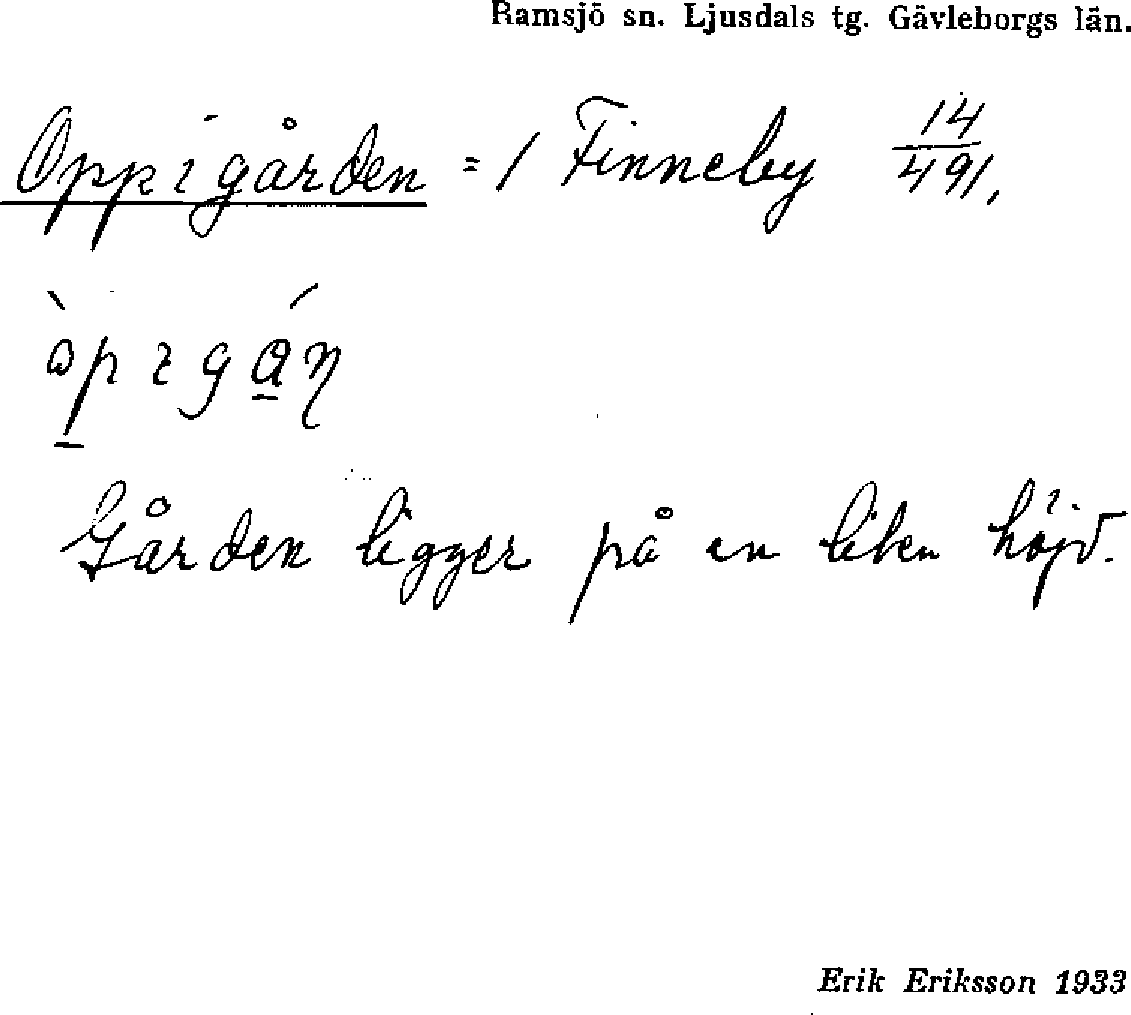 Ramsjö sn. Ljusdals tg. Gävleborgs län.
Oppigården = 1 Finneby 14/491,
Gården ligger på en liten höjd.
Erik Eriksson 1933